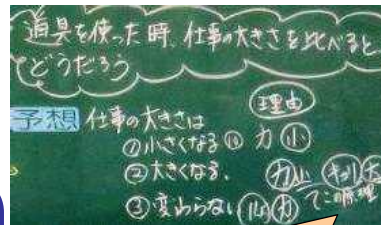 道具を使った時、仕事の大きさを比べると
どうだろう
理由
予想 仕事の大きさは
①小さくなる ⑩ 力 小
②大きくなる. 力小 キョリ大
③変わらない 力 てこの原理